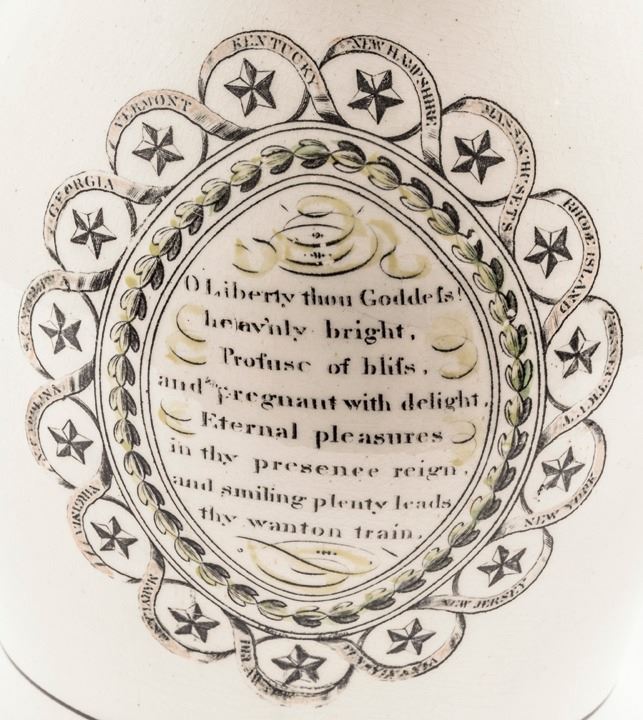 KENTUCKY
NEW HAMPSHIRE
MASSACHUSETS
RHODE ISLAND
CONNECTICUT
NEW YORK
NEW JERSEY
VIRGINIA
GEORGIA
VERMONT
O Liberty thou Goddeſs!
heav'nly bright,
Profuse of bliſs,
and pregnant with delight,
Eternal pleasures
in thy presence reign,
and smiling plenty leads
thy wanton train.